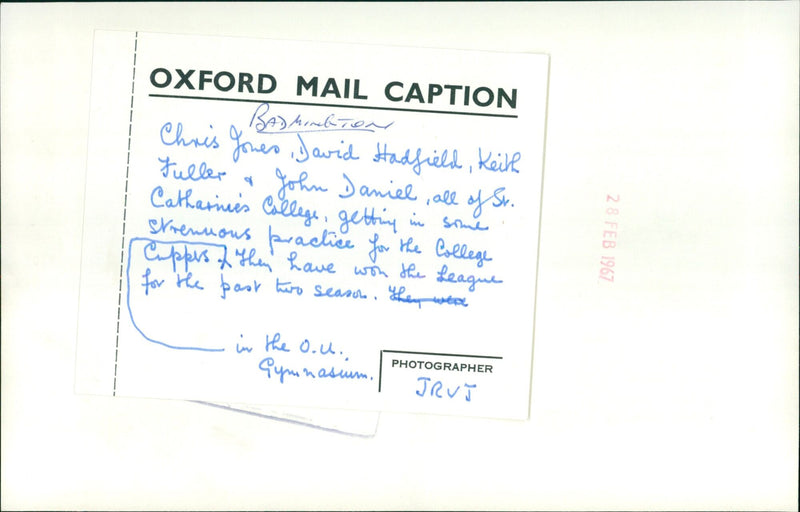 OXFORD MAIL CAPTION
BADMINGTON
Chris Jones, David Hadfield, Keith
Fuller & John Daniel, all of St.
Catharine's College, getting in some
strenuous practice for the College
Cuppers. They have won the League
for the past two season. They were
in the O.U.
Gymnasium.
PHOTOGRAPHER
JRVJ
28 FEB 1967